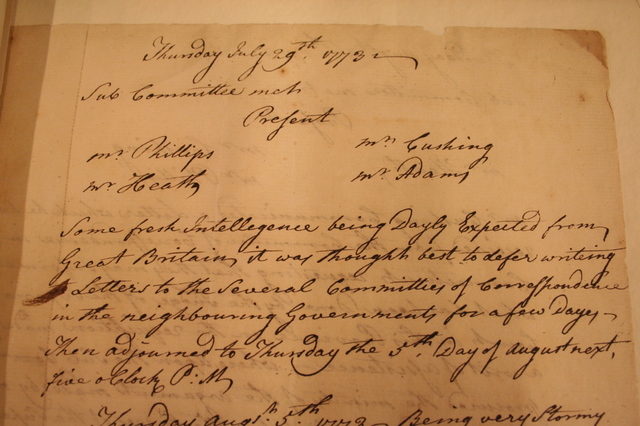 Thursday July 29th. 1773
Sub Committee met
Present
mr. Phillips mr. Cushing
mr Heath mr. Adams
Some fresh Intellegence being Dayly Expected from
Great Britain, it was thought best to defer writing
Letters to the Several Committies of Correspondence
in the neighbouring Governments for a few Days
Then adjourned to Thursday the 5th. Day of august next,
five oClock P:M,
Thursday augst. 5th. 1773 Being very Stormy